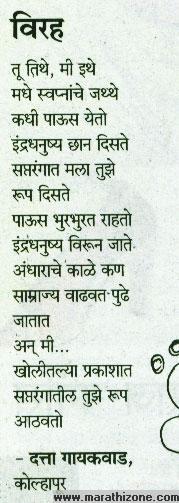 विरह
तू तिथे, मी इथे
मधे स्वप्नांचे जथ्थे
कधी पाऊस येतो
इंद्रधनुष्य छान दिसते
सप्तरंगात मला तुझे
रूप दिसते
पाऊस भुरभुरत राहतो
इंद्रधनुष्य विरून जाते
अंधाराचे काळे कण
साम्राज्य वाढवत पुढे
जातात
अन् मी...
खोलीतल्या प्रकाशात
सप्तरंगातील तुझे रूप
आठवतो
- दत्ता गायकवाड,
कोल्हापूर
www.marathizone.com